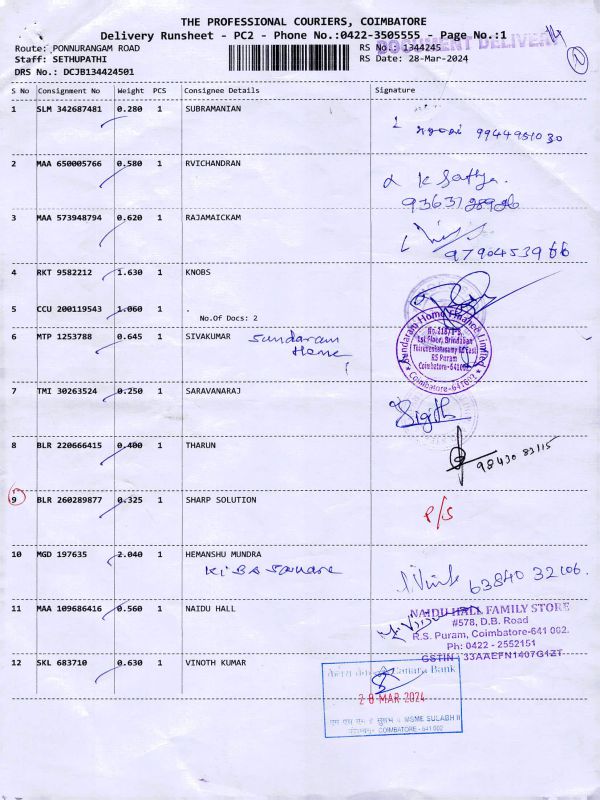 THE PROFESSIONAL COURIERS, COIMBATORE
Delivery Runsheet - PC2 - Phone No.:0422-3505555 - Page No.:1
DOCUMENT DELIVERY
Route: PONNURANGAM ROAD
RS No.: 1344245
Staff: SETHUPATHI
RS Date: 28-Mar-2024
DRS No.: DCJB134424501
S No Consignment No Weight PCS Consignee Details Signature
1 SLM 342687481 0.280 1 SUBRAMANIAN
9944951030
2 MAA 650005766 0.580 1 RVICHANDRAN
K Sathya.
3 MAA 573948794 0.620 1 RAJAMAICKAM
9790453966
4 RKT 9582212 1.630 1 KNOBS
5 CCU 200119543 1.060 1 .
No.Of Docs: 2
6 MTP 1253788 0.645 1 SIVAKUMAR Sundaram
Home
Sundaram Home Finance Limited
No.218/1-5,
1st Floor, Brindavan
Thiruvenkatasamy Rd East
RS Puram
Coimbatore-641002
Coimbatore-641002
7 TMI 30263524 0.250 1 SARAVANARAJ
8 BLR 220666415 0.400 1 THARUN
98430 83115
9 BLR 260289877 0.325 1 SHARP SOLUTION
P/S
10 MGD 197635 2.040 1 HEMANSHU MUNDRA
63840 32106.
11 MAA 109686416 0.560 1 NAIDU HALL
NAIDU HALL FAMILY STORE
#578, D.B. Road
R.S. Puram, Coimbatore-641 002.
Ph: 0422 - 2552151
GSTIN : 33AAEFN1407G1ZT
12 SKL 683710 0.630 1 VINOTH KUMAR
Canara Bank
28 MAR 2024
MSME SULABH II
COIMBATORE - 641 002